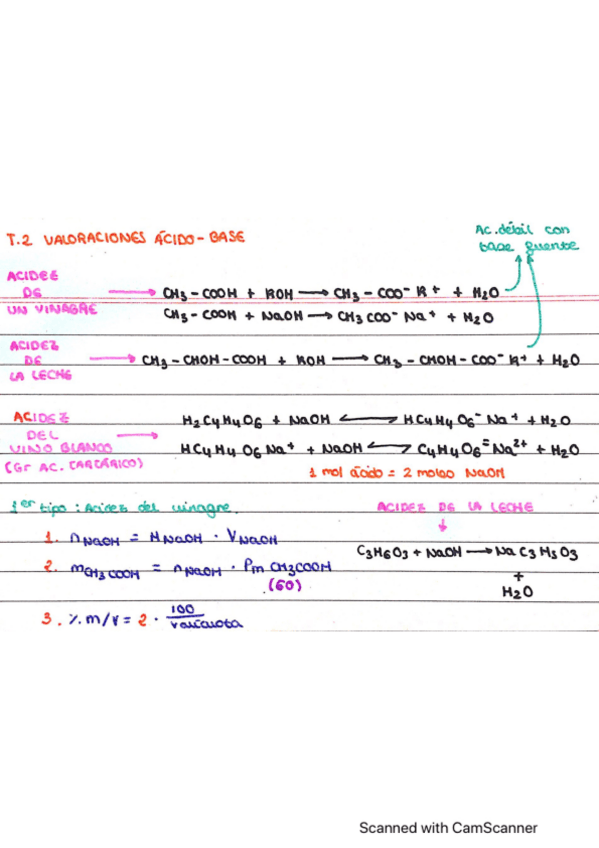 T.2 VALORACIONES ÁCIDO-BASE
Ac. débil con
base fuerte
ACIDEZ
DE
UN VINAGRE
CH3-COOH + KOH → CH3-COO- K+ + H2O
CH3-COOH + NaOH → CH3COO- Na+ + H2O
ACIDEZ
DE
LA LECHE
CH3-CHOH-COOH + KOH → CH3-CHOH-COO- K+ + H2O
ACIDEZ
DEL
VINO BLANCO
(Gr AC. TARTÁRICO)
H2C4H4O6 + NaOH ⇄ HC4H4O6- Na+ + H2O
HC4H4O6Na+ + NaOH ⇄ C4H4O6= Na2+ + H2O
1 mol ácido = 2 moles NaOH
1er tipo: Acidez del vinagre.
1. nNaOH = MNaOH · VNaOH
2. mCH3COOH = nNaOH · Pm CH3COOH
(60)
3. % m/v = 2 · 100 / Valícuota
ACIDEZ DE LA LECHE
↓
C3H6O3 + NaOH → NaC3H5O3
+
H2O
Scanned with CamScanner